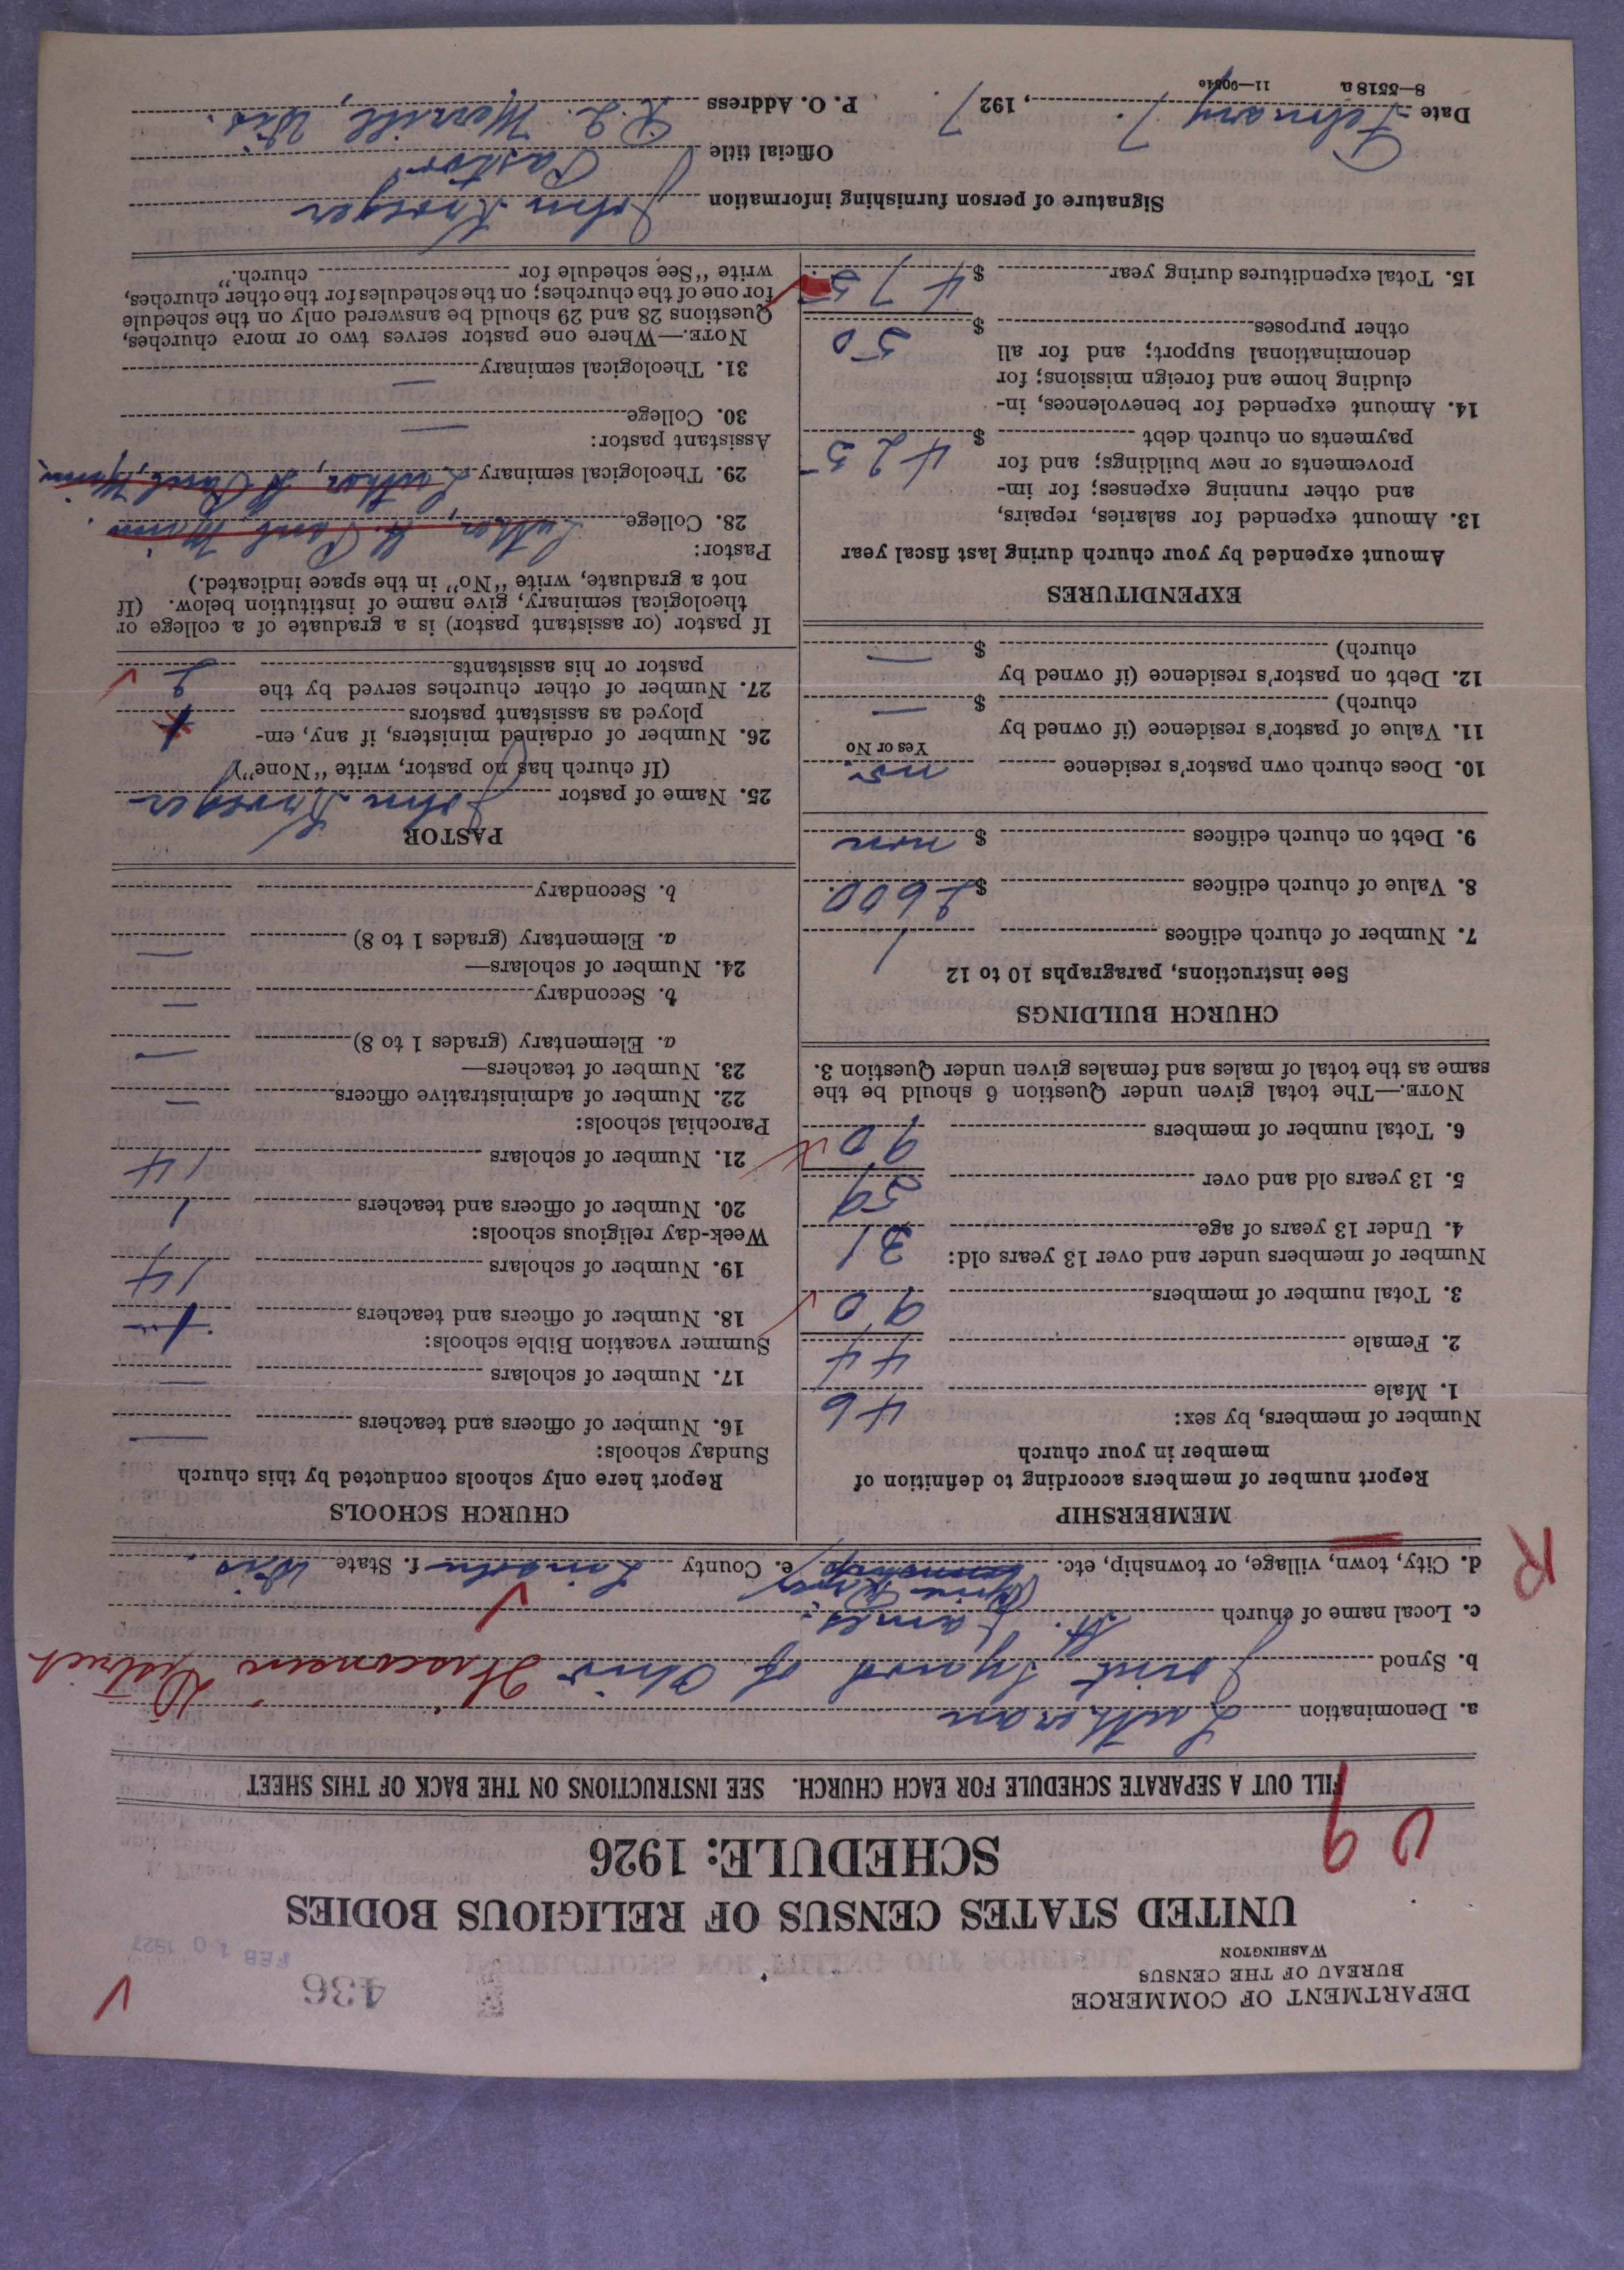 DEPARTMENT OF COMMERCE
BUREAU OF THE CENSUS
WASHINGTON
436
FEB 10 1927
UNITED STATES CENSUS OF RELIGIOUS BODIES
SCHEDULE: 1926
FILL OUT A SEPARATE SCHEDULE FOR EACH CHURCH. SEE INSTRUCTIONS ON THE BACK OF THIS SHEET
a. Denomination Lutheran
b. Synod Joint Synod of Ohio Wisconsin District
c. Local name of church St. James
d. City, town, village, or township, etc. Pine River township e. County Lincoln f. State Wis.
R
MEMBERSHIP
Report number of members according to definition of
member in your church
Number of members, by sex:
1. Male 46
2. Female 44
3. Total number of members 90
Number of members under and over 13 years old:
4. Under 13 years of age 31
5. 13 years old and over 59
6. Total number of members 90
NOTE.—The total given under Question 6 should be the
same as the total of males and females given under Question 3.
CHURCH BUILDINGS
See instructions, paragraphs 10 to 12
7. Number of church edifices 1
8. Value of church edifices $ 2600.
9. Debt on church edifices $ non
10. Does church own pastor's residence no
Yes or No
11. Value of pastor's residence (if owned by
church) $ —
12. Debt on pastor's residence (if owned by
church) $ —
EXPENDITURES
Amount expended by your church during last fiscal year
13. Amount expended for salaries, repairs,
and other running expenses; for im-
provements or new buildings; and for
payments on church debt $ 425
14. Amount expended for benevolences, in-
cluding home and foreign missions; for
denominational support; and for all
other purposes $ 50
15. Total expenditures during year $ 475
CHURCH SCHOOLS
Report here only schools conducted by this church
Sunday schools:
16. Number of officers and teachers —
17. Number of scholars —
Summer vacation Bible schools:
18. Number of officers and teachers 1
19. Number of scholars 14
Week-day religious schools:
20. Number of officers and teachers 1
21. Number of scholars 14
Parochial schools:
22. Number of administrative officers —
23. Number of teachers—
a. Elementary (grades 1 to 8) —
b. Secondary —
24. Number of scholars—
a. Elementary (grades 1 to 8) —
b. Secondary
PASTOR
25. Name of pastor John Kroeger
(If church has no pastor, write "None")
26. Number of ordained ministers, if any, em-
ployed as assistant pastors
27. Number of other churches served by the
pastor or his assistants 2
If pastor (or assistant pastor) is a graduate of a college or
theological seminary, give name of institution below. (If
not a graduate, write "No" in the space indicated.)
Pastor:
28. College Luther, St. Paul, Minn.
29. Theological seminary Luther, St. Paul, Minn.
Assistant pastor:
30. College —
31. Theological seminary —
NOTE.—Where one pastor serves two or more churches,
Questions 28 and 29 should be answered only on the schedule
for one of the churches; on the schedules for the other churches,
write "See schedule for church."
Signature of person furnishing information John Kroeger
Official title Pastor
Date February 7., 1927. P. O. Address R.2. Merrill, Wis.
8—5518 a